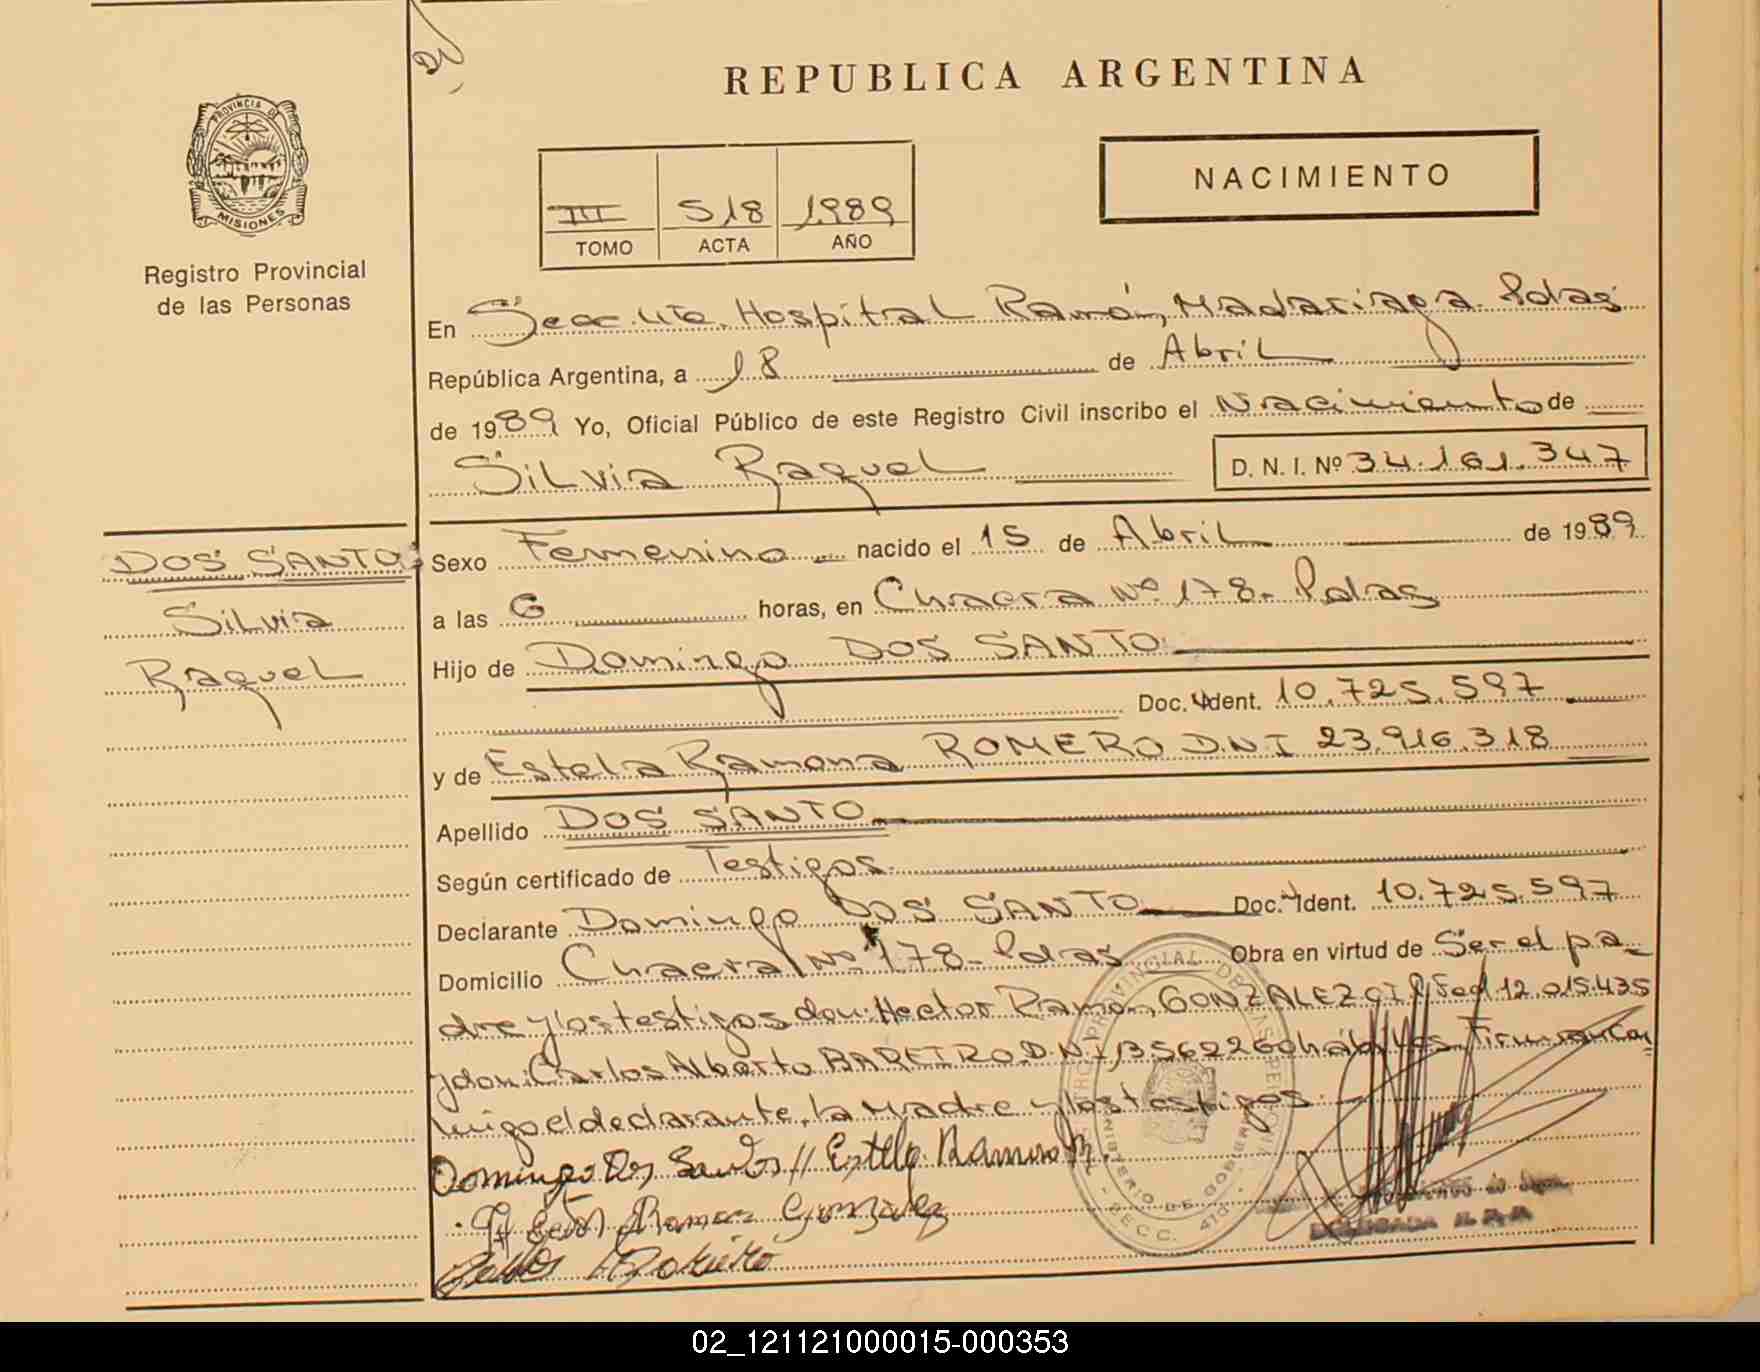 REPUBLICA ARGENTINA
PROVINCIA DE
MISIONES
Registro Provincial
de las Personas
NACIMIENTO
III 518 1989
TOMO ACTA AÑO
En Secc. 4ta. Hospital Ramón Madariaga. Pdas
República Argentina, a 18 de Abril
de 1989 Yo, Oficial Público de este Registro Civil inscribo el Nacimiento de
Silvia Raquel D. N. I. Nº 34.161.347
DOS SANTO
Silvia
Raquel
Sexo Femenino nacido el 15 de Abril de 1989
a las 6 horas, en Chacra Nº 178- Pdas
Hijo de Domingo DOS SANTO
Doc. Ident. 10.725.597
y de Estela Ramona ROMERO D.N.I 23.916.318
Apellido DOS SANTO
Según certificado de Testigos
Declarante Domingo DOS SANTO Doc. Ident. 10.725.597
Domicilio Chacra Nº 178- Pdas Obra en virtud de Ser el pa-
dre y los testigos don: Hector Ramón GONZALEZ CI P Fed 12.015.435
y don: Carlos Alberto BAREIRO D.N.I hábiles. Firman con
migo el declarante, la Madre y los testigos.
Domingo Dos Santos // Estela Ramona
Ramon Gonzalez
02_121121000015-000353